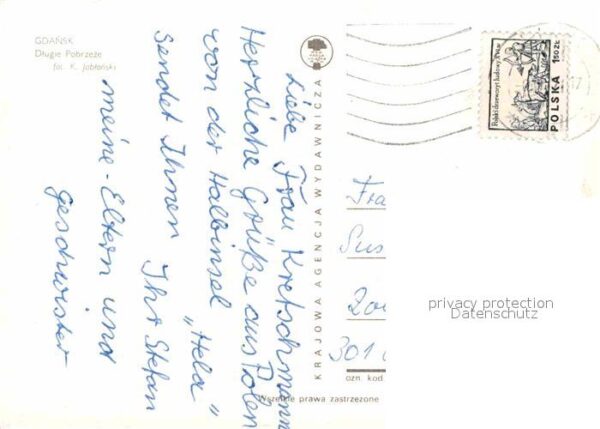 GDAŃSK
Długie Pobrzeże
fot. K. Jabłoński
Liebe Frau Kretschmann
Herzliche Grüße aus Polen
von der Halbinsel „Hela"
sendet Ihnen Ihr Stefan
meine - Eltern und
geschwister
KRAJOWA AGENCJA WYDAWNICZA
Polski drzeworyt ludowy XVI w.
POLSKA 1.50 ZŁ
17
Fra
Sus
301
ozn. kod
Wszelkie prawa zastrzeżone
privacy protection
Datenschutz